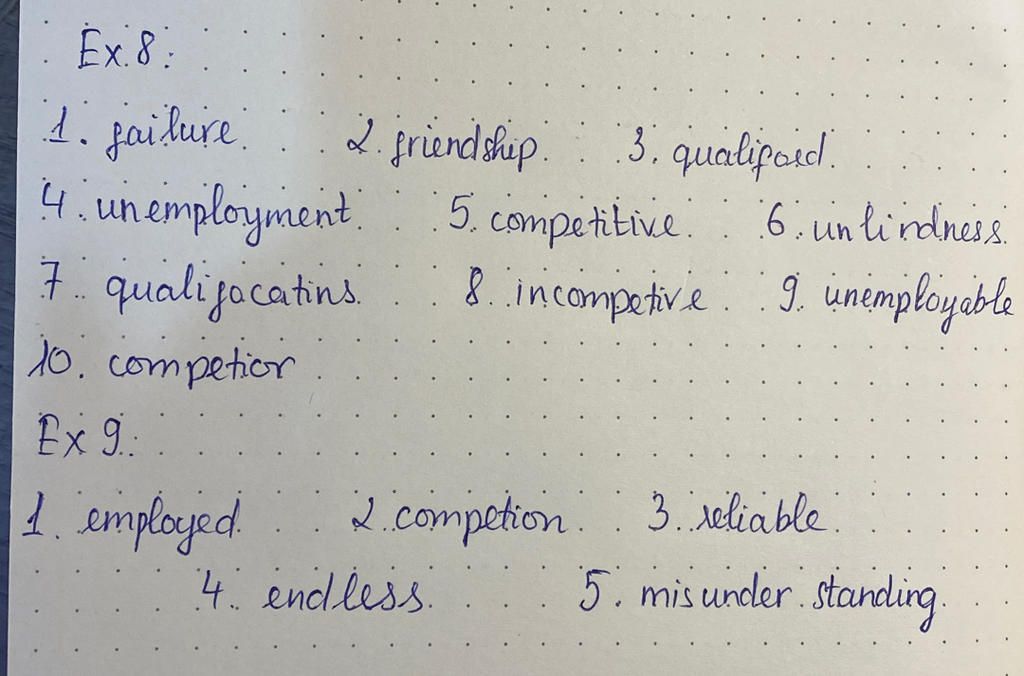 Ex. 8:
1. failure 2. friendship 3. qualifoed
4. unemployment 5. competitive 6. unkindness
7. qualifacatins 8. incompetive 9. unemployable
10. competior
Ex 9:
1. employed 2. competion 3. reliable
4. endless 5. misunderstanding